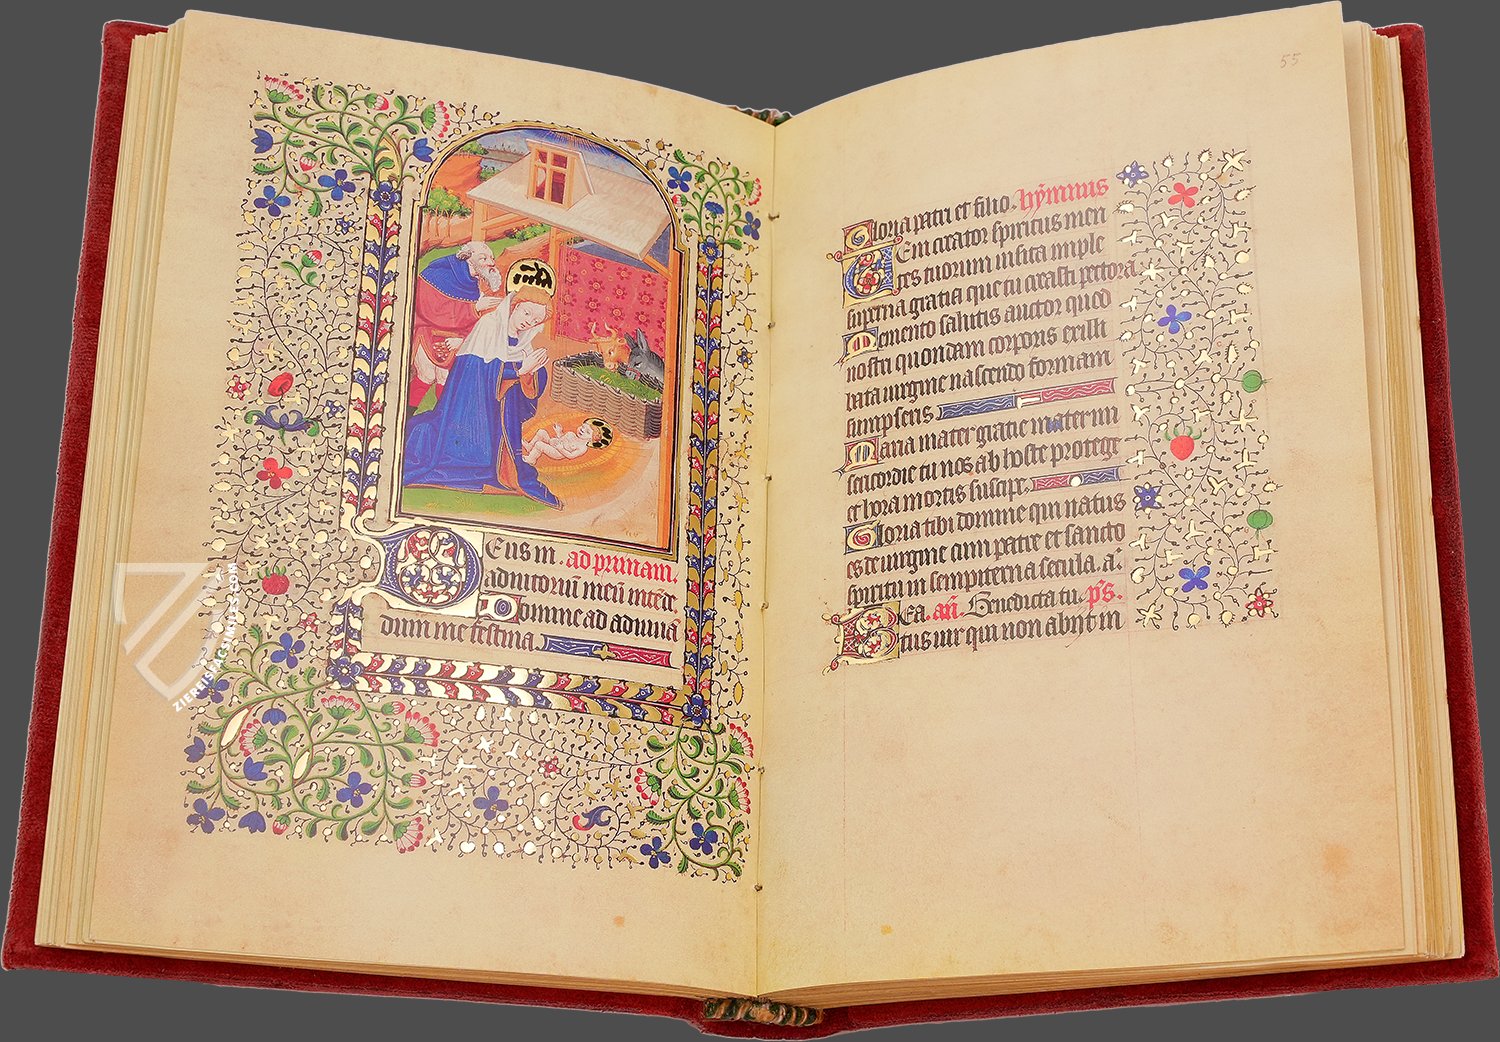 Eus in. ad primam.
adiutoriũ meũ intẽde.
Domine ad adiuuã
dum me festina.
55
Gloria patri et filio. hỹmnus
Eni creator spiritus men
tes tuorum uisita imple
superna gratia que tu creasti pectora
Memento salutis auctor quod
nostri quondam corporis ex illi
bata uirgine nascendo formam
sumpseris
Maria mater gratie mater mi
sericordie tu nos ab hoste protege
et hora mortis suscipe.
Gloria tibi domine qui natus
es de uirgine cum patre et sancto
spiritu in sempiterna secula. a.
Ea. añ. Benedicta tu. p̃s.
Eatus uir qui non abijt in
ZIEREISFACSIMILES.COM